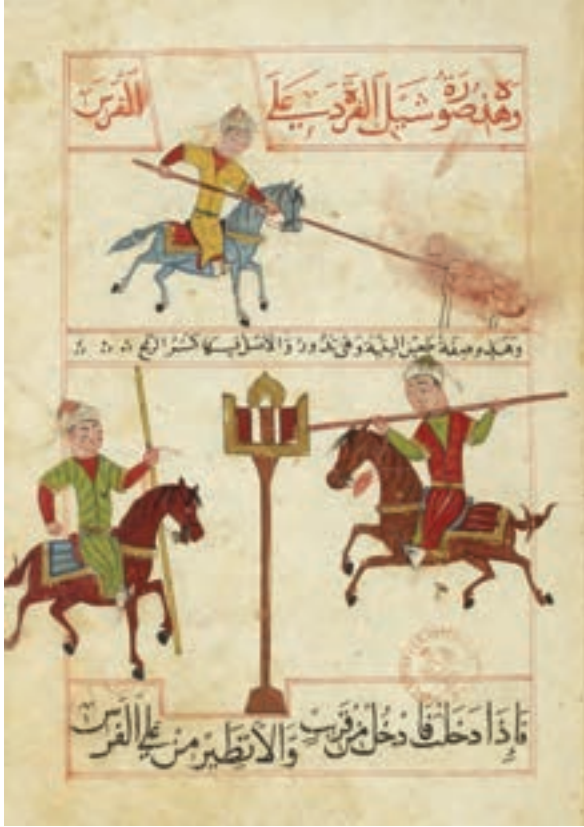 وهذه صورة شيل القردب على الفرس
وهذه صفة طعن البنية وهي تدور والاصل فيها كسر الرمح
فإذا دخلت فادخل من قريب والا تطير من على الفرس